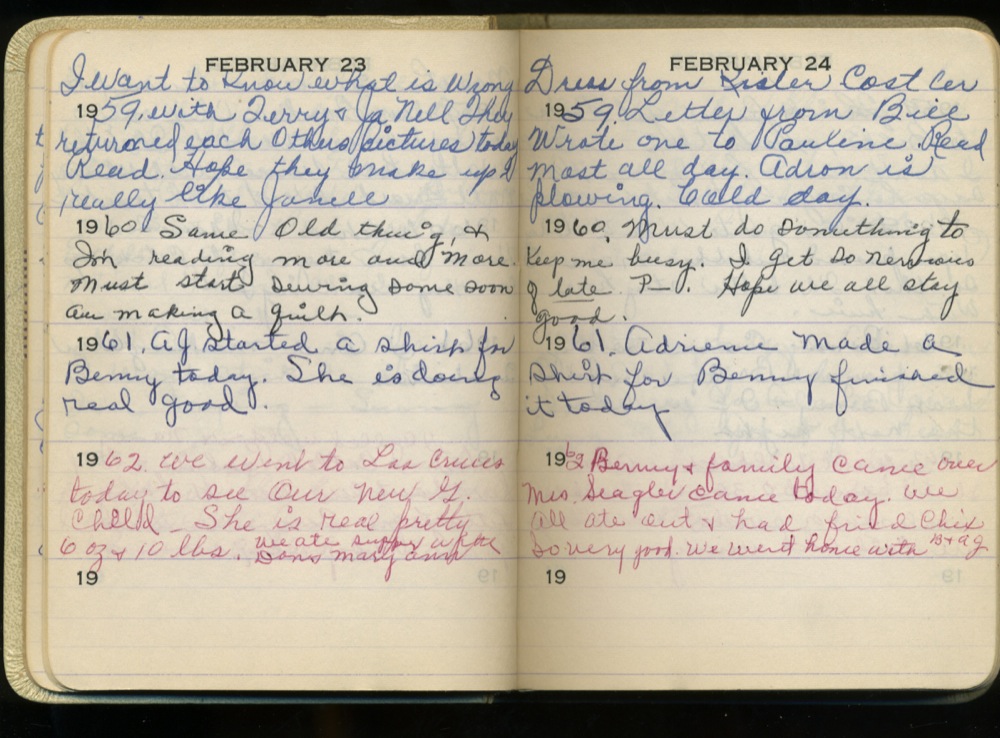 FEBRUARY 23
I want to know what is wrong
1959, with Terry & Ja Nell They
returned each Others pictures today
Read. Hope they make up I
really like Janell
1960. Same Old thing, &
Im reading more and more.
Must start sewing some soon
am making a quilt.
1961. AJ started a shirt for
Benny today. She is doing
real good.
1962. we went to Las Cruces
today to see Our new G.
Child - She is real pretty
6 oz & 10 lbs. we ate supper
Dons mary ann
19
FEBRUARY 24
Dress from Sister Cost
1959. Letter from Bill
Wrote one to Pauline. Read
most all day. Adron is
plowing. Cold day.
1960. Must do something to
Keep me busy. I get so nervous
of late. P—. Hope we all stay
good.
1961. Adriene made a
shirt for Benny finished
it today
1962 Benny & family came over
Mrs. Seagler came today. we
all ate out & had fried Chix
So very good. we went home with B & AJ
19